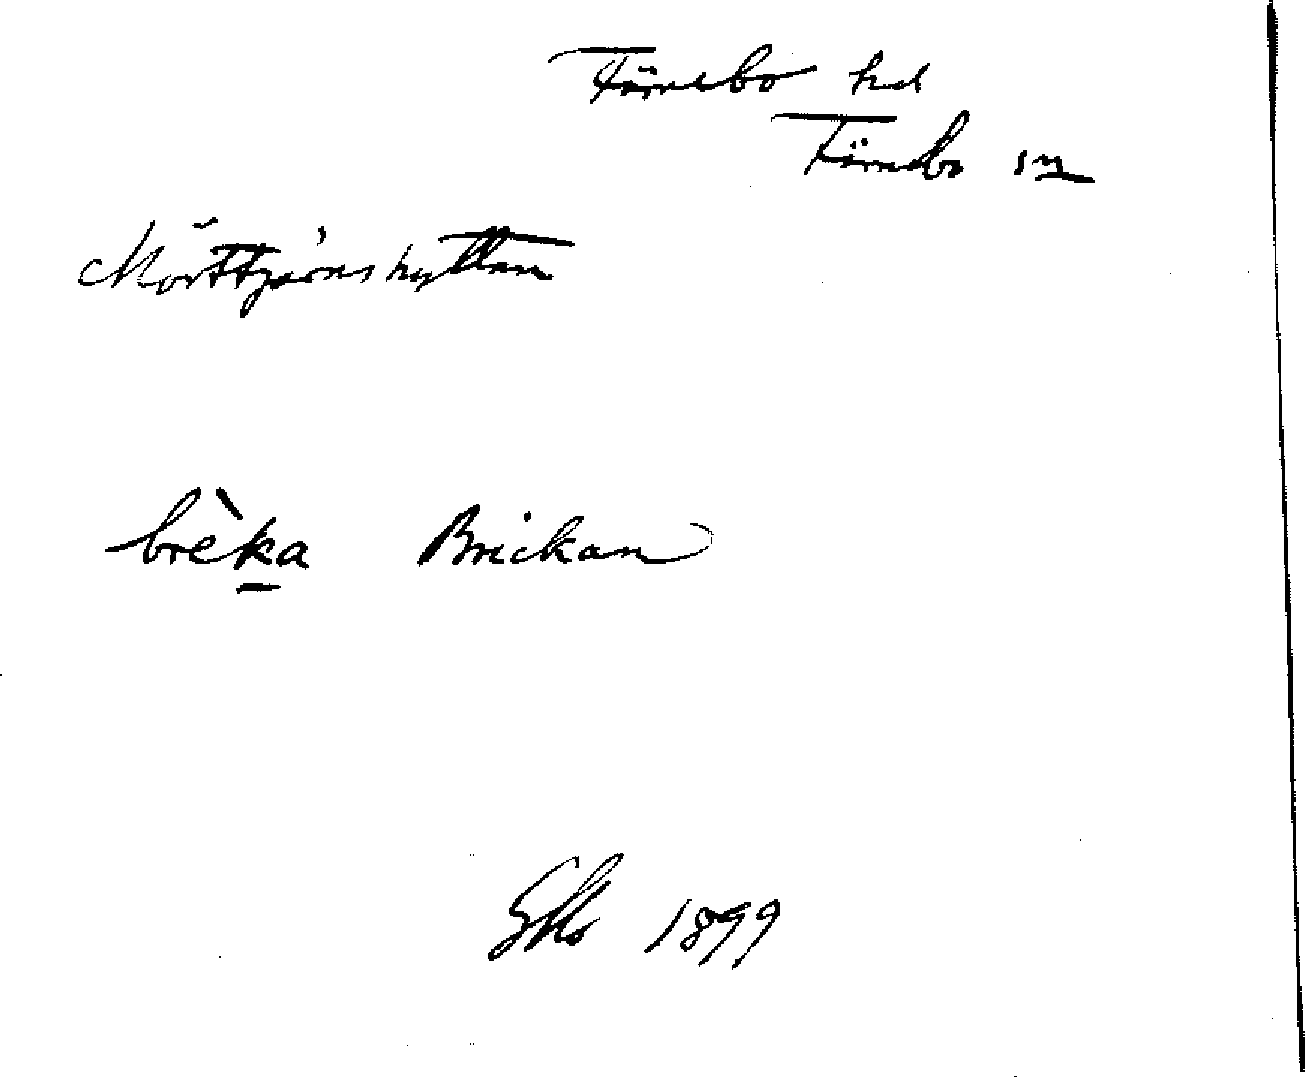 Färnebo hd
Färnebo sn
Mörttjärnshyttan
brèka Brickan
Gbs 1899